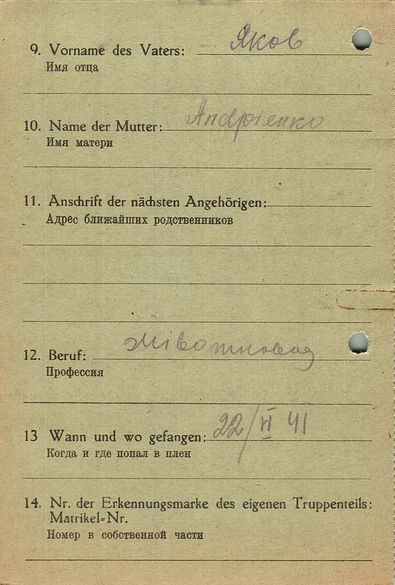 9. Vorname des Vaters: Яков
Имя отца
10. Name der Mutter: Андрієнко
Имя матери
11. Anschrift der nächsten Angehörigen:
Адрес ближайших родственников
12. Beruf: животновод
Профессия
13 Wann und wo gefangen: 22/VI 41
Когда и где попал в плен
14. Nr. der Erkennungsmarke des eigenen Truppenteils:
Matrikel-Nr.
Номер в собственной части